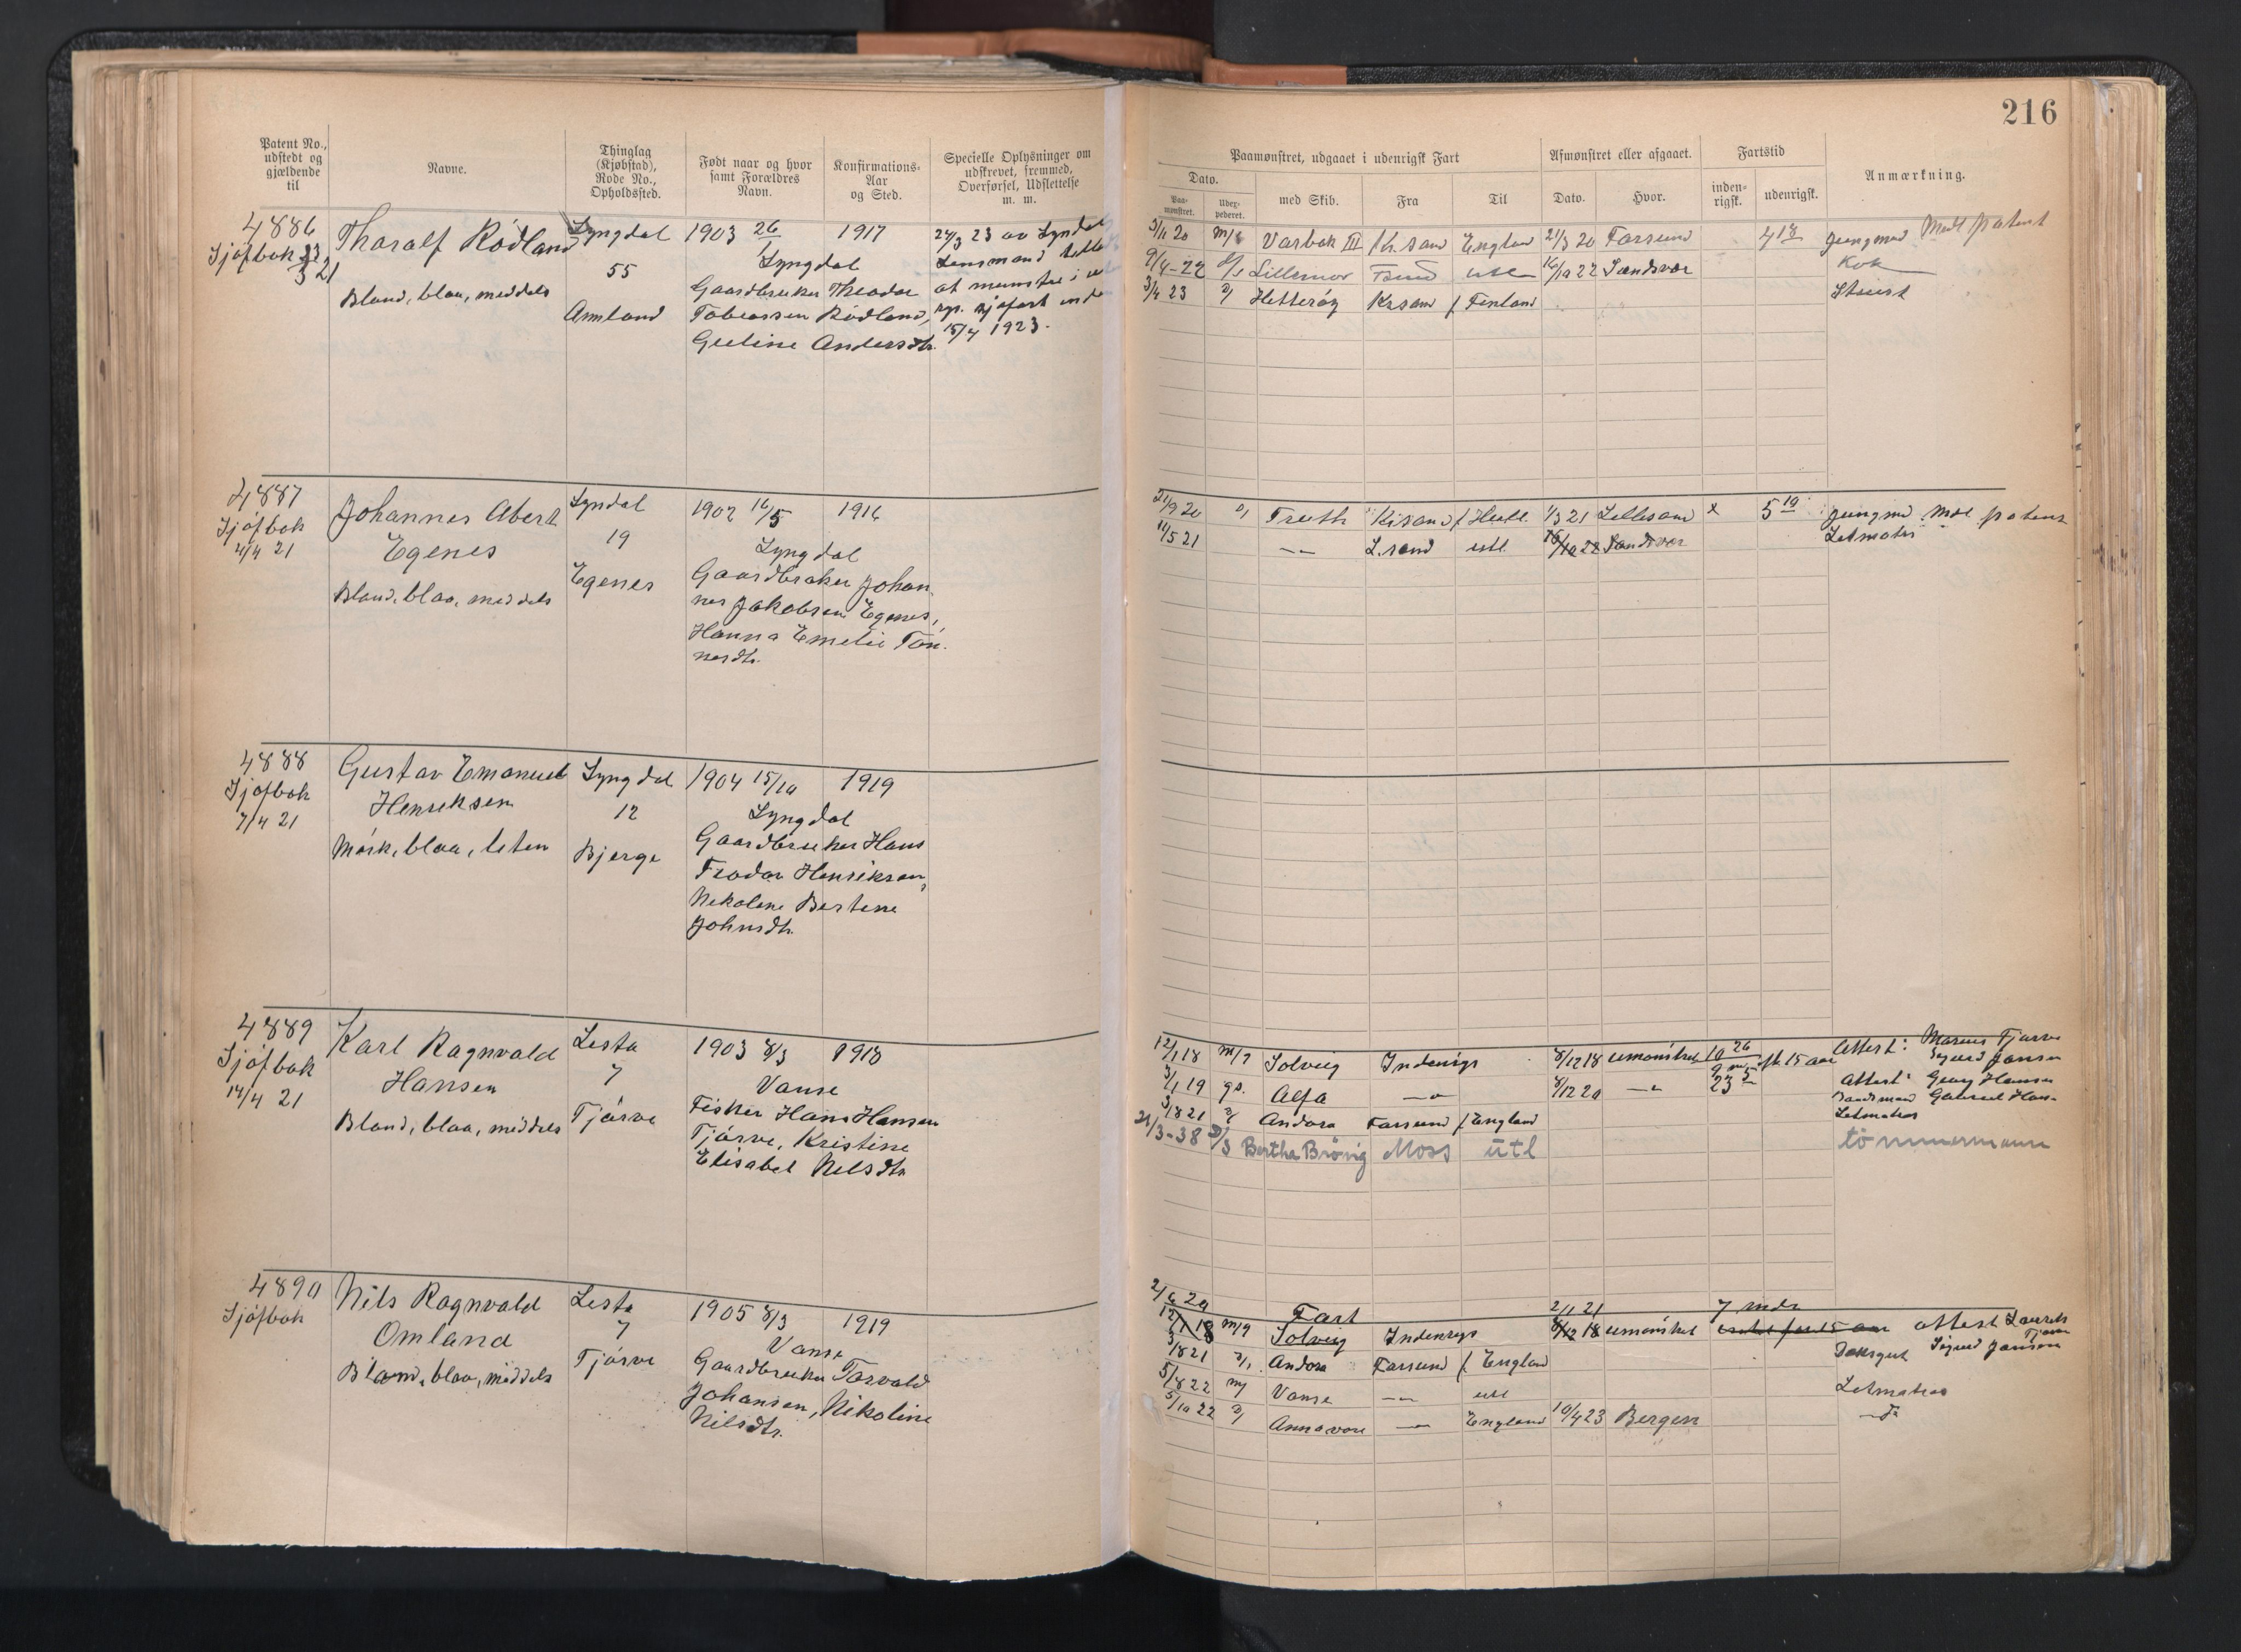 216
Patent No., udstedt og gjældende til
Navne.
Thinglag (Kjøbstad), Rode No., Opholdssted.
Født naar og hvor samt Forældres Navn.
Konfirmations-Aar og Sted.
Specielle Oplysninger om udskrevet, fremmed, Overførsel, Udslettelse m. m.
Paamønstret, udgaaet i udenrigsk Fart
Afmønstret eller afgaaet.
Fartstid
Anmærkning.
Dato.
Paa-mønstret.
Udex-pederet.
med Skib.
Fra
Til
Dato.
Hvor.
inden-rigsk.
udenrigsk.
4886
Sjøfbok
Tharalf Rödland
Bland, blaa, meddels
Lyngdal
55
Aamland
1903 26/
1917
Lyngdal
Gaardbruker Theodor
Tobiassen Rödland,
Guline Andersdtr.
24/3 23 av Lyndal
Lensmand
at mønstre i
15/4 1923.
3/11 20 m/s Varbak III Kr.sand England 21/3 20 Farsund 4 18 Jungmand Med patent
9/4-22 Lillemor utl 16/10 22 Sandvær Kok
3/4 23 Hetteröy Krsand Finland Stuert
4887
Sjöfbok
4/4 21
Johannes Abert
Egenes
Bland, blaa, meddels
Lyndal
19
Egenes
1902 16/5
1916
Lyngdal
Gaardbruker Johan
nes Jakobsen Egenes,
Hanna Emelie Tön
nesdtr.
21/9 20 Truth Krsand 1/3 21 Lillesand x 5 19 Jungmd Med patent
11/5 21 —"— L.sand utl 16/10 22 Sandvær Letmatros
4888
Sjöfbok
7/4 21
Gustav Emanuel
Henriksen
Mörk, blaa, liten
Lyngdal
12
Bjerge
1904 15/10
1919
Lyngdal
Gaardbruker Hans
Teodor Henriksen,
Nekoline Bertine
Johnsdtr.
4889
Sjöfbok
14/4 21
Karl Ragnvald
Hansen
Bland, blaa, meddels
Lista
7
Tjörve
1903 8/3
1918
Vanse
Fisker Hans Hansen
Tjörve, Kristine
Elisabet Nilsdtr
12/1 18 Solveig Indenrigs 8/12 18 umönstret 10 26 Attest: Marius Tjörve
Sigurd Jansen
3/1 19 Alfa —"— 8/12 20 —"— 23 5 Attest: Georg Hansen
Gabriel Han-
3/8 21 Andora Farsund England Letmatros
21/3-38 D/S Bertha Brövig Moss utl tömmermann
4890
Sjöfbok
Nils Ragnvald
Omland
Bland, blaa, meddels
Lista
7
Tjörve
1905 8/3
1919
Vanse
Gaardbruker Torvald
Johansen, Nikoline
Nilsdtr.
2/6 20 Fart 2/1 21 7 mdr
12/1 18 Solveig Indenrigs 8/12 18 umönstret attest Laurits
Tjörve
Sigurd Jansen
3/8 21 Andora Farsund England Dæksgut
5/8 22 Vanse —"— utl Letmatros
5/10 22 Annavore —"— England 10/4 23 Bergen —do